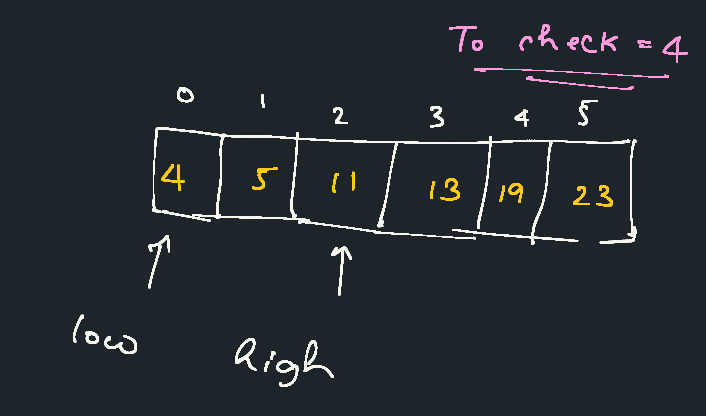 To check = 4
0 1 2 3 4 5
4 5 11 13 19 23
low high